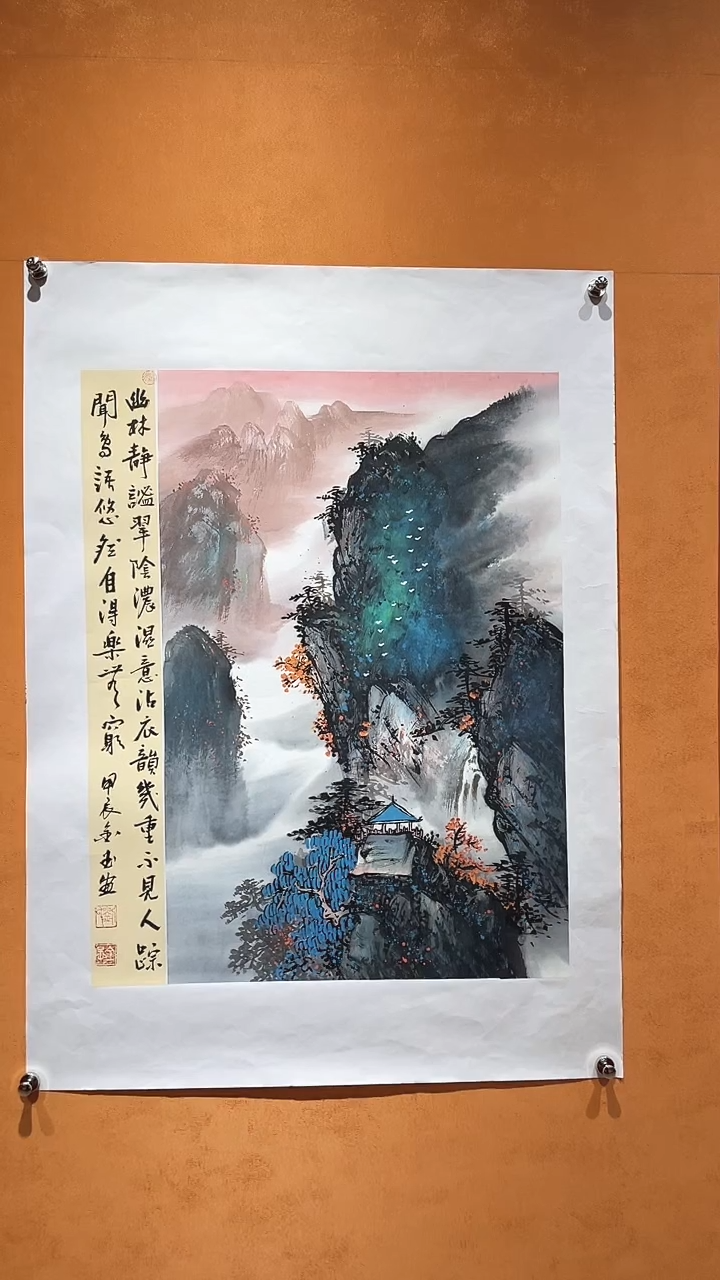 幽林静謐翠陰濃濕意沾衣韻幾重不見人踪
聞鳥語悠然自得樂無窮 甲辰金玉畫